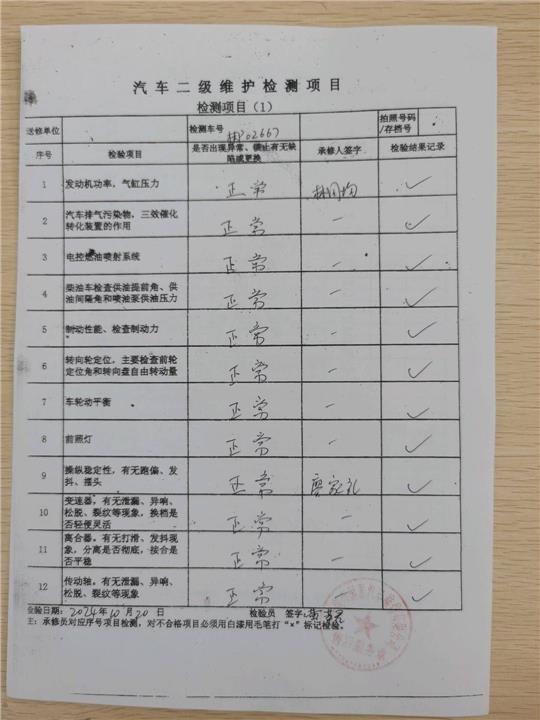 汽车二级维护检测项目
检测项目（1）
送修单位 检测车号 拍照号码/存档号
P02667
序号 检验项目 是否出现异常、 有无缺陷或更换 承修人签字 检验结果记录
1 发动机功率，气缸压力 正常 ✓
2 汽车排气污染物，三效催化转化装置的作用 正常 — ✓
3 电控燃油喷射系统 正常 — ✓
4 柴油车检查供油提前角、供油间隔角和喷油泵供油压力 正常 — ✓
5 制动性能、检查制动力 正常 — ✓
6 转向轮定位，主要检查前轮定位角和转向盘自由转动量 正常 — ✓
7 车轮动平衡 正常 — ✓
8 前照灯 正常 — ✓
9 操纵稳定性，有无跑偏、发抖、摆头 正常 ✓
10 变速器，有无泄漏、异响、松脱、裂纹等现象，换档是否轻便灵活 正常 — ✓
11 离合器。有无打滑、发抖现象，分离是否彻底，接合是否平稳 正常 — ✓
12 传动轴。有无泄漏、异响、松脱、裂纹等现象 正常 — ✓
检验日期：2024年10月20日 检验员 签字：
主：承修员对应序号项目检测，对不合格项目必须用白漆用毛笔打“×”标记检验。